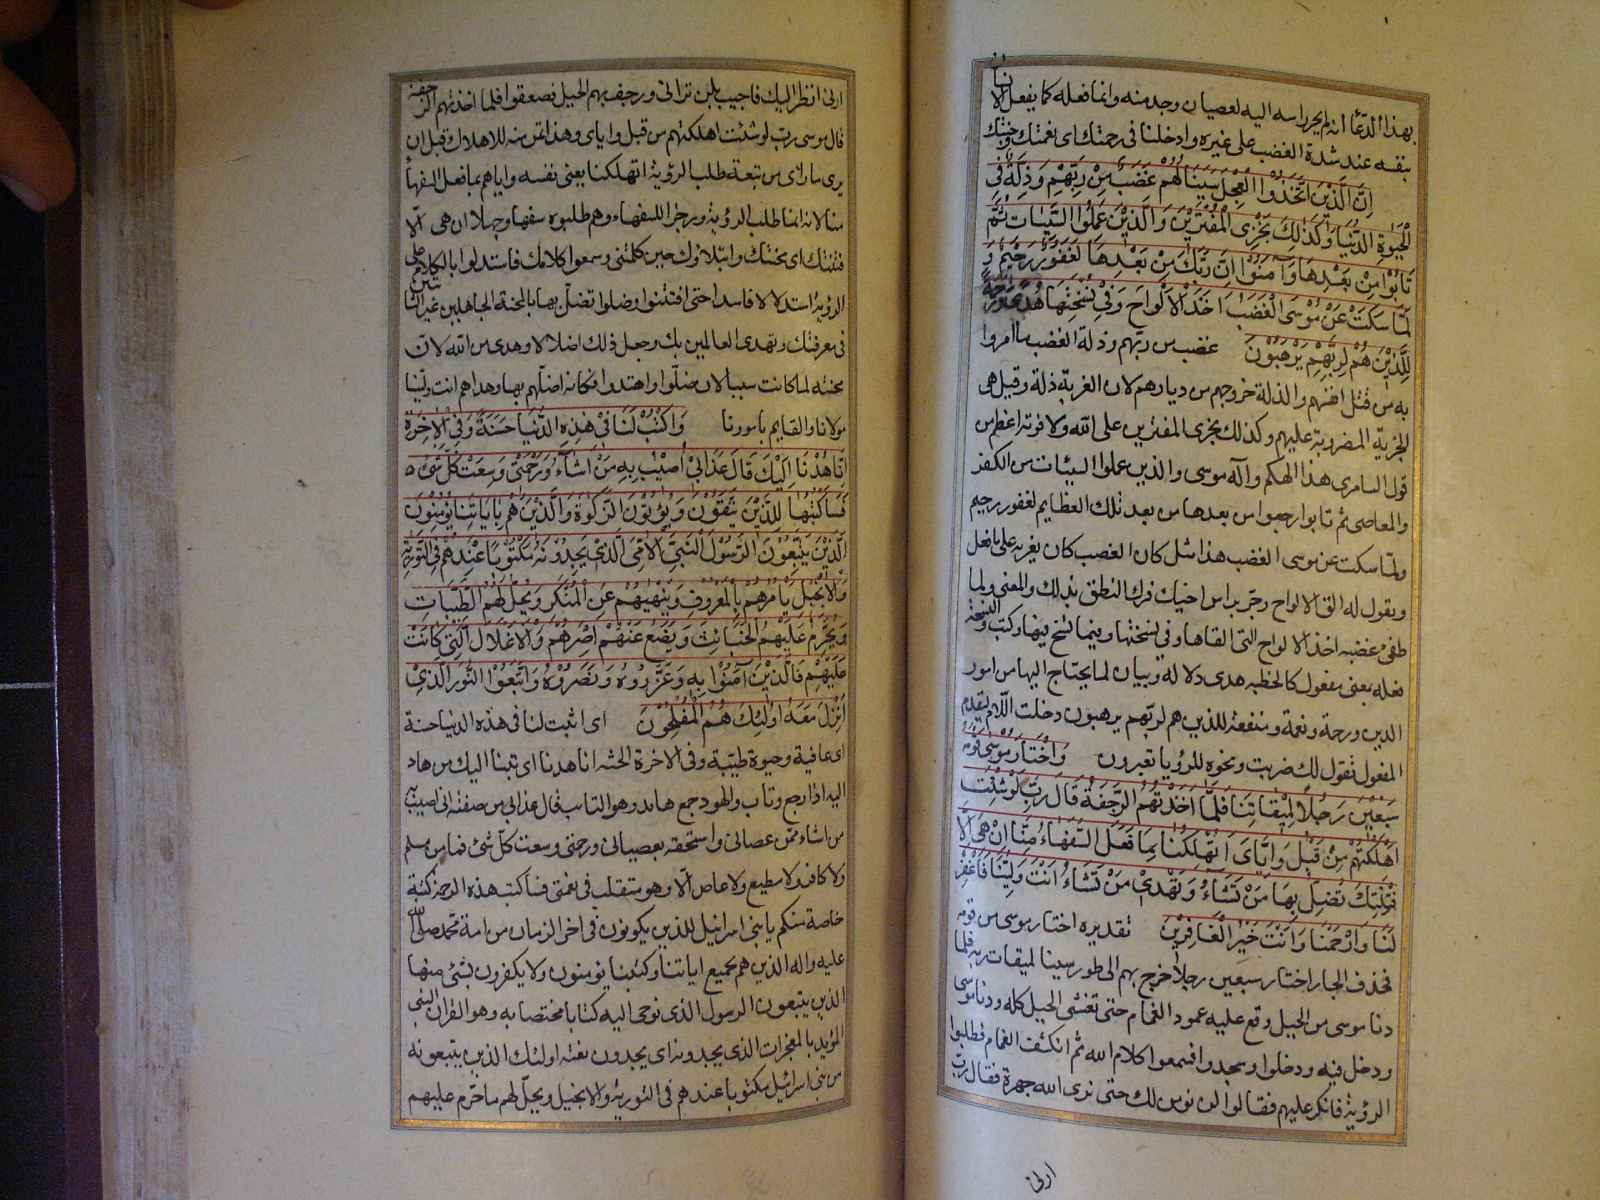 بهذا الدعا انه لم يجر راسه اليه لعصيان وجد منه وانما فعله كما يفعل الانسان
بنفسه عند شدة الغضب على غيره وادخلنا فى رحمتك اى نعمتك وجنتك
اِنَّ الَّذِيْنَ اتَّخَذُوا الْعِجْلَ سَيَنَالُهُمْ غَضَبٌ مِنْ رَبِّهِمْ وَذِلَّةٌ فِى
الْحَيٰوةِ الدُّنْيَا وَكَذٰلِكَ نَجْزِى الْمُفْتَرِيْنَ وَالَّذِيْنَ عَمِلُوا السَّيِّئَاتِ ثُمَّ
تَابُوْا مِنْ بَعْدِهَا وَآمَنُوْا اِنَّ رَبَّكَ مِنْ بَعْدِهَا لَغَفُوْرٌ رَحِيْمٌ وَ
لَمَّا سَكَتَ عَنْ مُوْسَى الْغَضَبُ اَخَذَ الْاَلْوَاحَ وَفِىْ نُسْخَتِهَا هُدًى وَرَحْمَةٌ
لِلَّذِيْنَ هُمْ لِرَبِّهِمْ يَرْهَبُوْنَ غضب من ربهم وذلة الغضب ما امروا
به من قتل انفسهم والذلة خروجهم من ديارهم لان الغربة ذلة وقيل هى
الجزية المضروبة عليهم وكذلك نجزى المفترين على الله ولا فرية اعظم من
قول السامرى هذا الهكم واله موسى والذين عملوا السيئات من الكفر
والمعاصى ثم تابوا رجعوا من بعدها من بعد تلك العظايم لغفور رحيم
ولما سكت عن موسى الغضب هذا مثل كان الغضب كان يغريه على ما فعل
ويقول له الق الالواح وجر براس اخيك فترك النطق بذلك والمعنى ولما
طفئ غضبه اخذ الالواح التى القاها وفى نسختها وفيما نسخ فيها وكتب والنسخة
فعله بمعنى مفعول كالخطبه هدى دلالة وبيان لما يحتاج اليها من امور
الدين ورحمة ونعمة ومنفعة للذين هم لربهم يرهبون دخلت اللام لتقدم
المفعول تقول لك ضربت ونحوه للرؤيا تعبرون وَاخْتَارَ مُوْسٰى قَوْمَهُ
سَبْعِيْنَ رَجُلًا لِمِيْقَاتِنَا فَلَمَّا اَخَذَتْهُمُ الرَّجْفَةُ قَالَ رَبِّ لَوْ شِئْتَ
اَهْلَكْتَهُمْ مِنْ قَبْلُ وَاِيَّاىَ اَتُهْلِكُنَا بِمَا فَعَلَ السُّفَهَاءُ مِنَّا اِنْ هِىَ اِلَّا
فِتْنَتُكَ تُضِلُّ بِهَا مَنْ تَشَاءُ وَتَهْدِىْ مَنْ تَشَاءُ اَنْتَ وَلِيُّنَا فَاغْفِرْ
لَنَا وَارْحَمْنَا وَاَنْتَ خَيْرُ الْغَافِرِيْنَ تقديره اختار موسى من قومه
فحذف الجار اختار سبعين رجلا خرج بهم الى طور سينا لميقات ربه فلما
دنا موسى من الجبل وقع عليه عمود الغمام حتى تغشى الجبل كله ودنا موسى
ودخل فيه ودخلوا وسجدوا فسمعوا كلام الله ثم انكشف الغمام فطلبوا
الرؤية فانكر عليهم فقالوا لن نؤمن لك حتى نرى الله جهرة فقال رب
ارنى
ارنى انظر اليك فاجيب بلن ترانى ورجف بهم الجبل فصعقوا فلما اخذتهم الرجفة
قال موسى رب لو شئت اهلكتهم من قبل واياى وهذا تمن منه للاهلاك قبل ان
يرى ما راى من تبعة طلب الرؤية اتهلكنا يعنى نفسه واياهم بما فعل السفهاء
منا لانه انما طلب الرؤية زجرا للسفهاء وهم طلبوه سفها وجهلا ان هى الا
فتنتك اى محنتك وابتلاؤك حين كلمتنى وسمعوا كلامك فاستدلوا بالكلام على
الرؤية استدلالا فاسدا حتى افتتنوا وضلوا تضل بها بالمحنة الجاهلين غير الثابتين
فى معرفتك وتهدى العالمين بك وجعل ذلك اضلالا وهدى من الله لان
محنته لما كانت سببا لان ضلوا واهتدوا فكانه اضلهم بها وهداهم انت ولينا
مولانا والقايم بامورنا وَاكْتُبْ لَنَا فِىْ هٰذِهِ الدُّنْيَا حَسَنَةً وَفِى الْاٰخِرَةِ
اِنَّا هُدْنَا اِلَيْكَ قَالَ عَذَابِىْ اُصِيْبُ بِهِ مَنْ اَشَاءُ وَرَحْمَتِىْ وَسِعَتْ كُلَّ شَىْءٍ
فَسَاَكْتُبُهَا لِلَّذِيْنَ يَتَّقُوْنَ وَيُؤْتُوْنَ الزَّكٰوةَ وَالَّذِيْنَ هُمْ بِاٰيَاتِنَا يُؤْمِنُوْنَ
اَلَّذِيْنَ يَتَّبِعُوْنَ الرَّسُوْلَ النَّبِىَّ الْاُمِّىَّ الَّذِىْ يَجِدُوْنَهُ مَكْتُوْبًا عِنْدَهُمْ فِى التَّوْرٰيةِ
وَالْاِنْجِيْلِ يَاْمُرُهُمْ بِالْمَعْرُوْفِ وَيَنْهٰيهُمْ عَنِ الْمُنْكَرِ وَيُحِلُّ لَهُمُ الطَّيِّبَاتِ
وَيُحَرِّمُ عَلَيْهِمُ الْخَبَائِثَ وَيَضَعُ عَنْهُمْ اِصْرَهُمْ وَالْاَغْلَالَ الَّتِىْ كَانَتْ
عَلَيْهِمْ فَالَّذِيْنَ آمَنُوْا بِهِ وَعَزَّرُوْهُ وَنَصَرُوْهُ وَاتَّبَعُوا النُّوْرَ الَّذِىْ
اُنْزِلَ مَعَهُ اُولٰئِكَ هُمُ الْمُفْلِحُوْنَ اى اثبت لنا فى هذه الدنيا حسنة
اى عافية وحيوة طيبة وفى الاخرة الجنة انا هدنا اى تبنا اليك من هاد
اليه اذا رجع وتاب والهود جمع هايد وهو التايب قال عذابى من صفته انى اصيب به
من اشاء ممن عصانى واستحقه بعصيانى ورحمتى وسعت كل شئ فما من مسلم
ولا كافر ولا مطيع ولا عاص الا وهو متقلب فى نعمتى فسأكتب هذه الرحمة كتبة
خاصة منكم يا بنى اسرائيل للذين يكونون فى اخر الزمان من امة محمد صلى الله
عليه واله الذين هم بجميع اياتنا وكتبنا يؤمنون ولا يكفرون بشئ منها
الذين يتبعون الرسول الذى نوحى اليه كتابا مختصا به وهو القران النبى
المؤيد بالمعجزات الذى يجدونه اى يجدون نعته اولئك الذين يتبعونه
من بنى اسرائيل مكتوبا عندهم فى التورية والانجيل ويحل لهم ما حرم عليهم